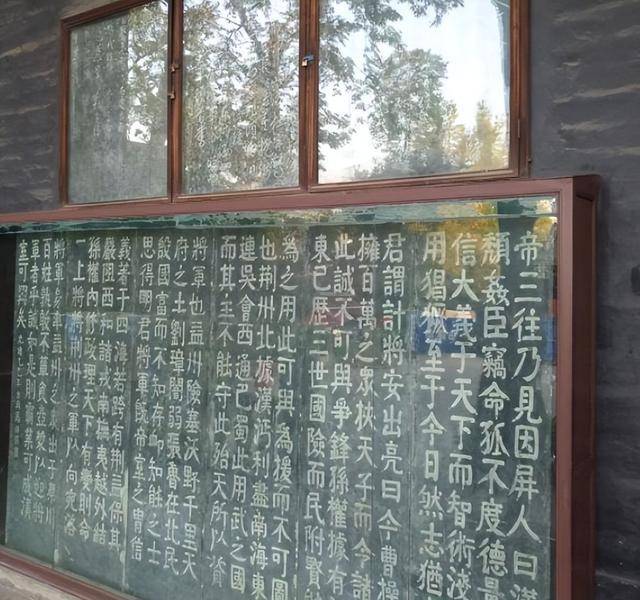 帝三往乃見因屏人曰漢
頹姦臣竊命孤不度德量
信大義于天下而智術淺
用猖獗至于今日然志猶
君謂計將安出亮曰今曹操
擁百萬之眾挾天子而令諸
此誠不可與爭鋒孫權據有
東已歷三世國險而民附賢
為之用此可與為援而不可圖
也荊州北據漢沔利盡南海東
連吳會西通巴蜀此用武之國
而其主不能守此殆天所以資
將軍也益州險塞沃野千里天
府之土劉璋闇弱張魯在北民
殷國富而不知存卹知能之士
思得明君將軍既帝室之胄信
義著于四海若跨有荊益保其
巖阻西和諸戎南撫夷越外結
孫權內修政理天下有變則命
一上將將荊州之軍以向宛洛
將軍身率益州之眾出于秦川
百姓孰敢不簞食壺漿以迎將
軍者乎誠如是則霸業可成漢
室可興矣